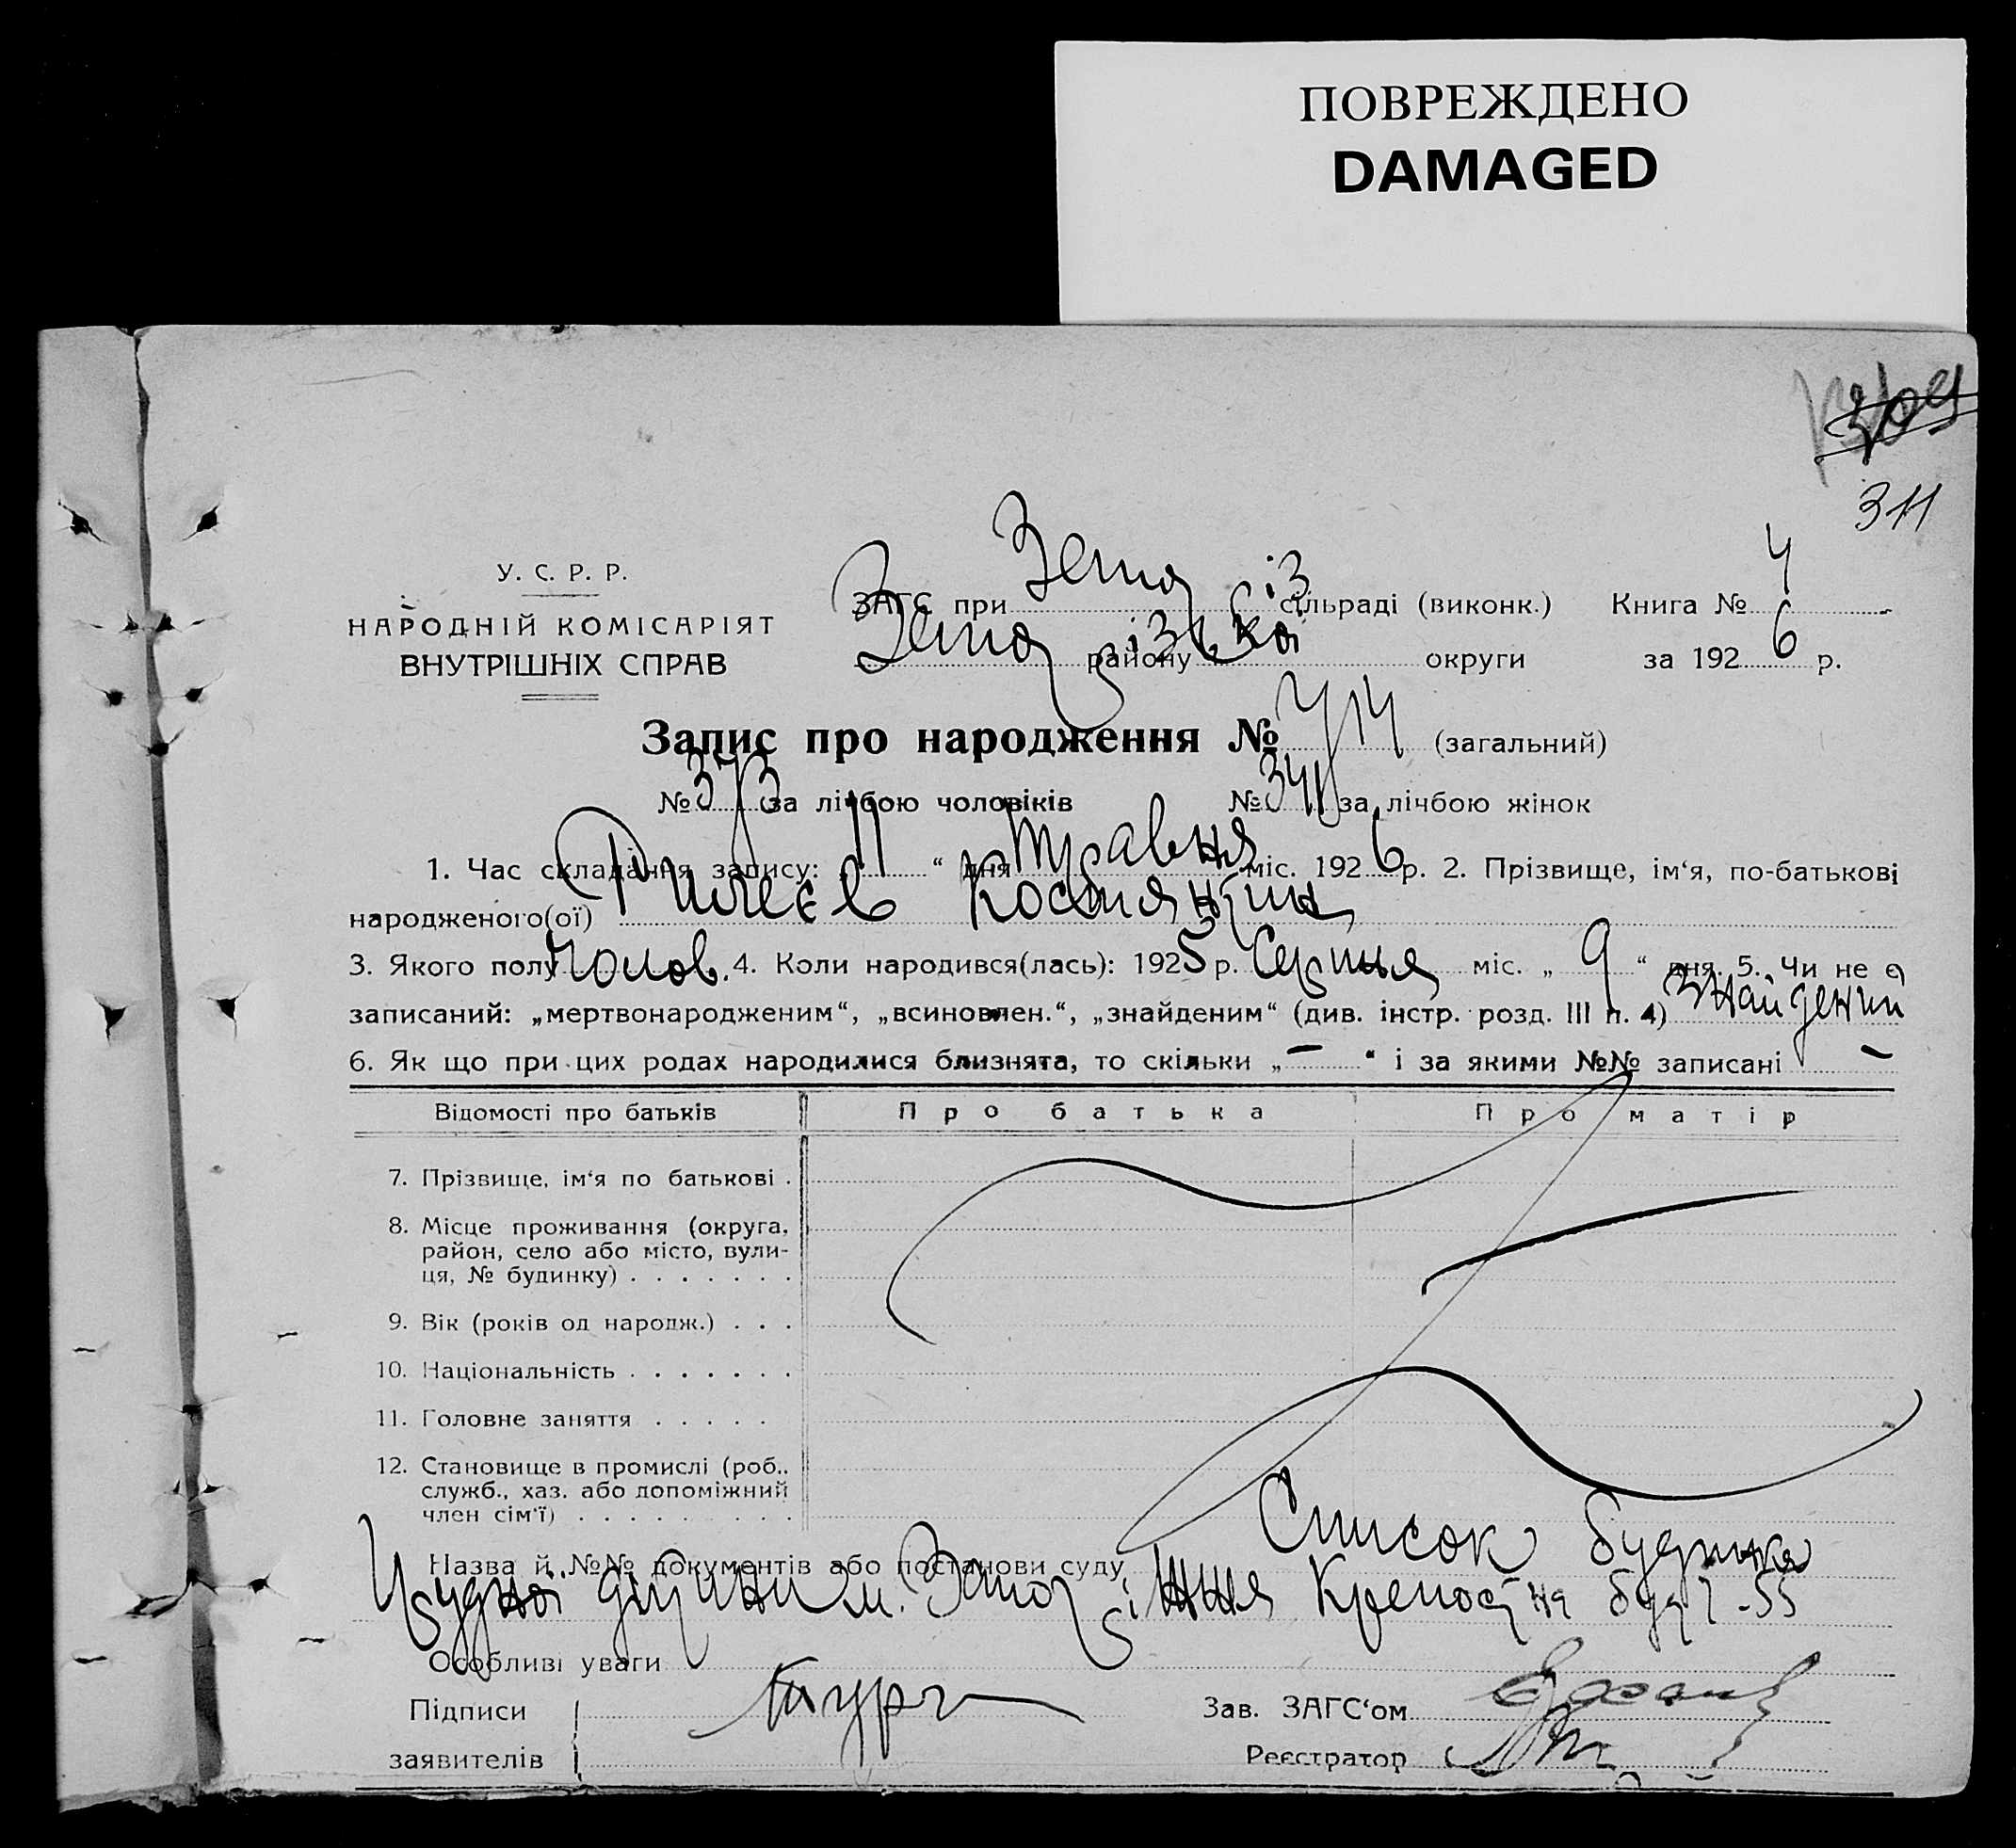 ПОВРЕЖДЕНО
DAMAGED
311
У. С. Р. Р.
НАРОДНІЙ КОМІСАРІЯТ
ВНУТРІШНІХ СПРАВ
ЗАГС при сільраді (виконк.) Книга № 4
району округи за 1926 р.
Запис про народження № 714 (загальний)
№ 373 за лічбою чоловіків № 341 за лічбою жінок
1. Час складання запису: „ 11 “ дня травня міс. 1926 р. 2. Прізвище, ім‘я, по-батькові
народженого(ої) Рилєєв Костянтин
3. Якого полу Чолов. 4. Коли народився(лась): 1925 р. Серпня міс. „ 9 “ дня. 5. Чи не є
записаний: „мертвонародженим“, „всиновлен.“, „знайденим“ (див. інстр. розд. III п. 4) знайдений
6. Як що при цих родах народилися близнята, то скільки „ – “ і за якими №№ записані –
Відомості про батьків Про батька Про матір
7. Прізвище, ім‘я по батькові .
8. Місце проживання (округа,
район, село або місто, вули-
ця, № будинку) . . . . . . .
9. Вік (років од народж.) . . .
10. Національність . . . . . . .
11. Головне заняття . . . . .
12. Становище в промислі (роб.,
служб., хаз. або допоміжний
член сім‘ї) . . . . . . . . .
Назва й №№ документів або постанови суду Список будинка
грудної дитини м. Запоріжжя Крепостна буд
Особливі уваги
Підписи
заявителів
Зав. ЗАГС‘ом
Реєстратор